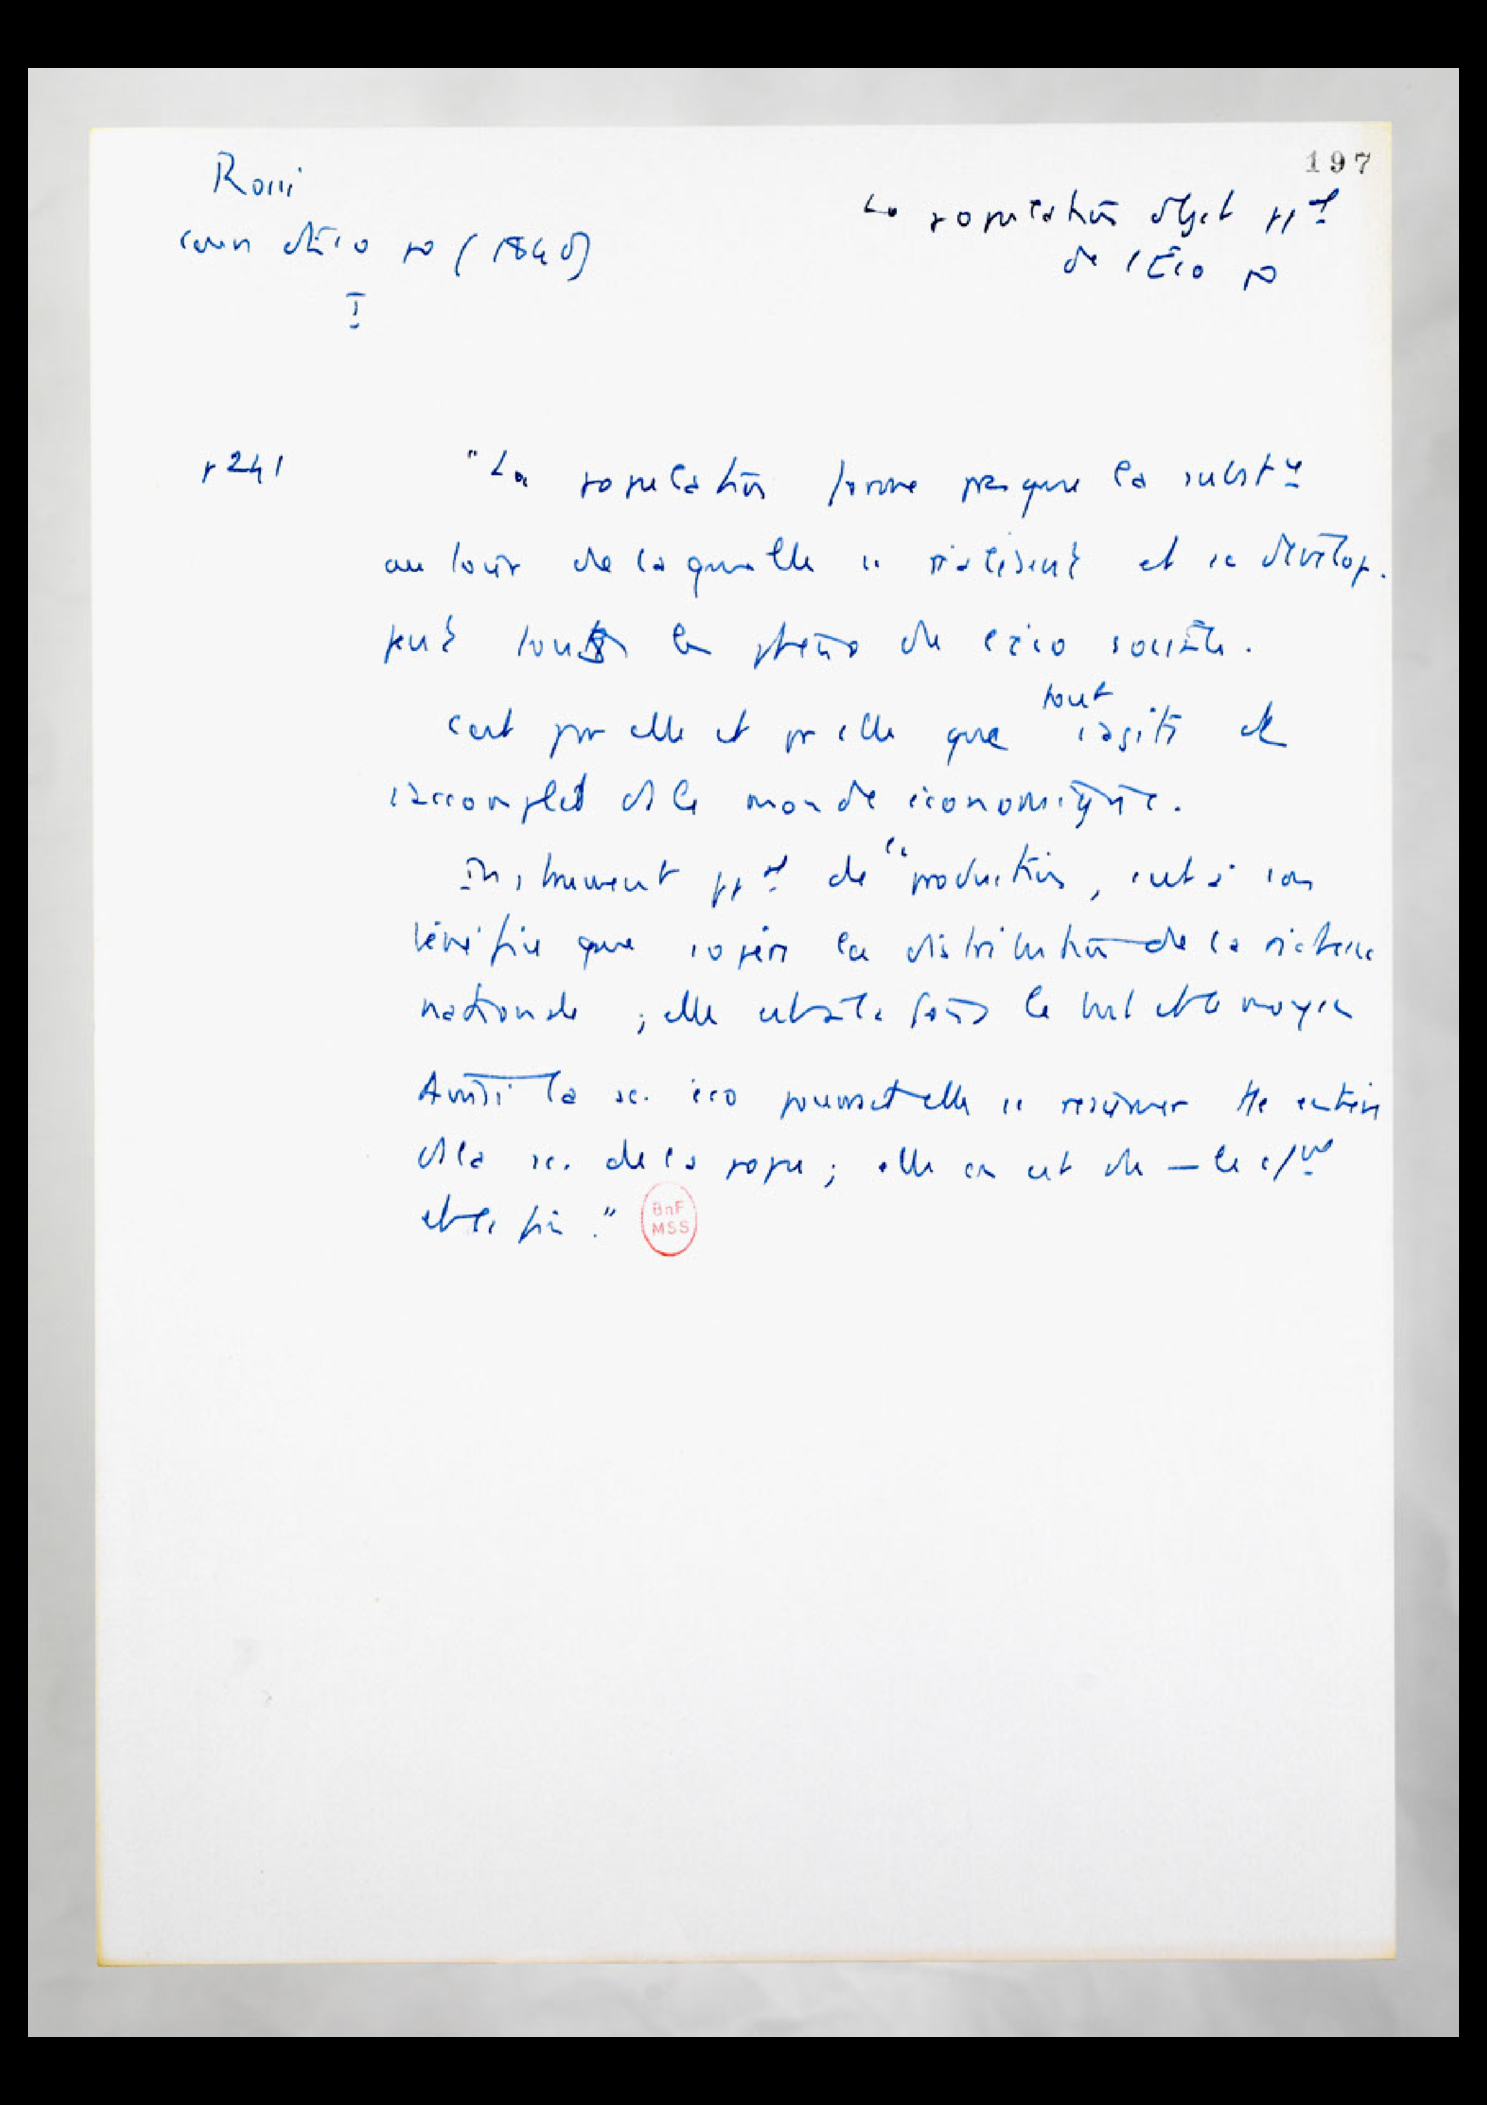 197
Rossi
cours d'éco po (1840)
I
La population objet ppal
de l'Éco po
p 241
"La population forme presque la subst ce
autour de laquelle se réalisent et se dévelop.
pent tous les phéno de l'éco sociale.
C'est par elle et pr elle que tout s'agite et
s'accomplit ds le monde économique.
Instrument ppal de la production, c'est à son
bénéfice que s'opère la distribution de la richesse
nationale ; elle est à la fois le but et le moyen
Aussi la sc. éco pourrait elle se résumer tte entière
ds la sc. de la popu ; elle en est de — le
et la fin."
BnF
MSS